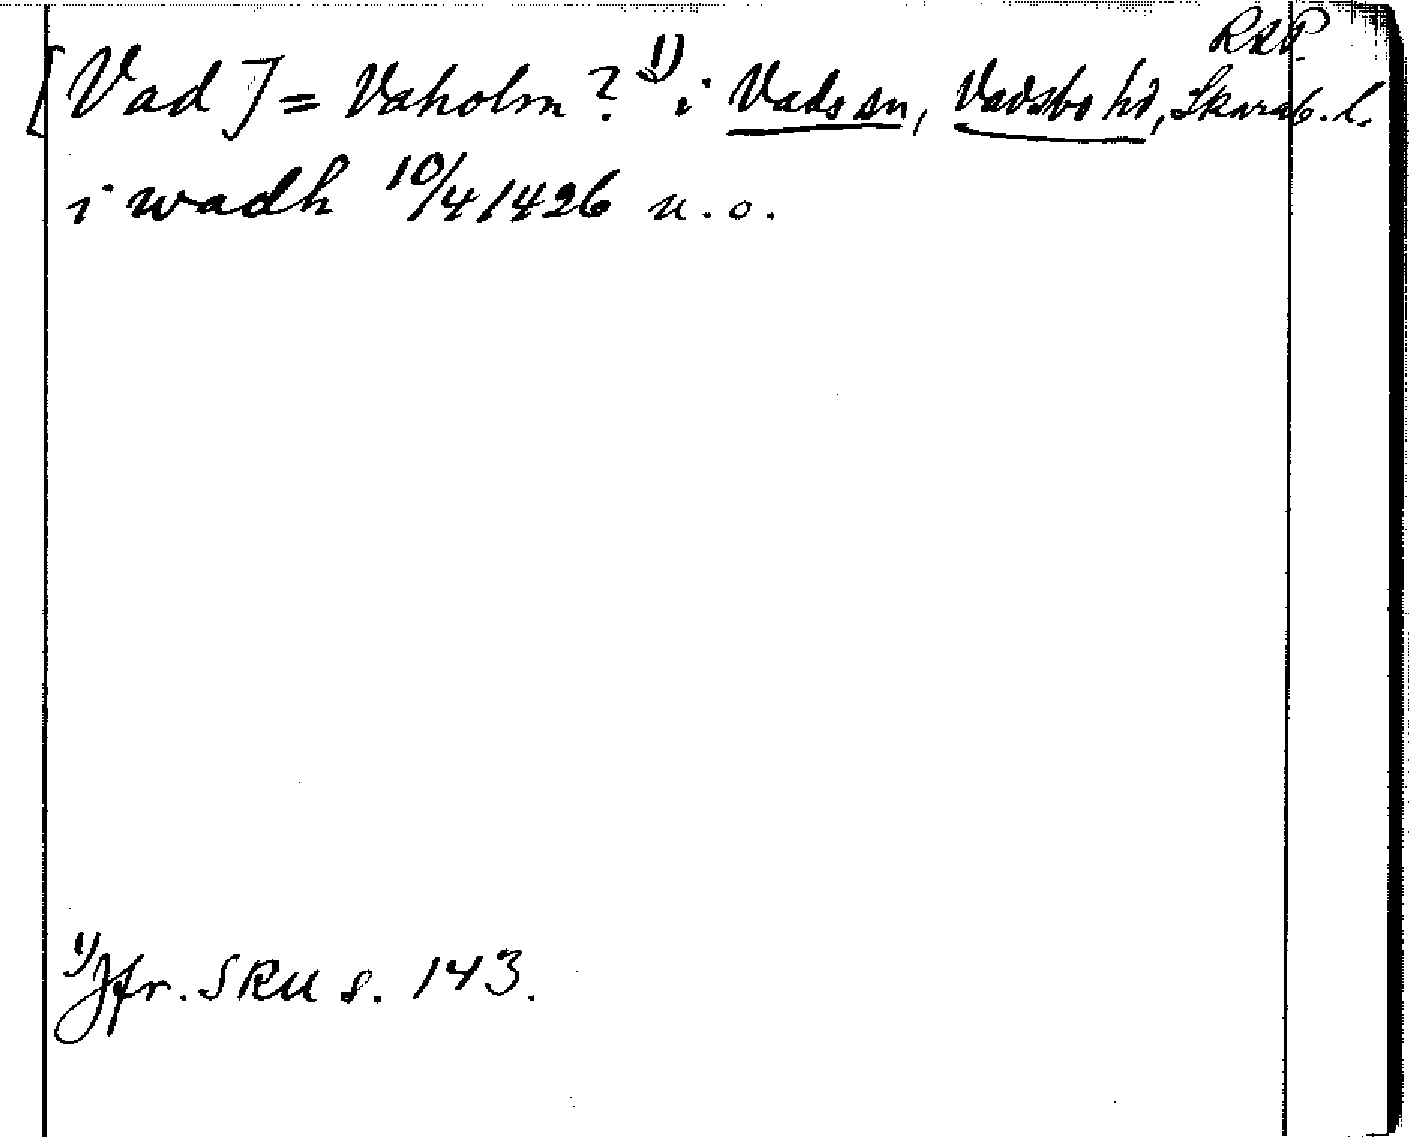 RAP.
[Vad] = Vaholm?¹⁾ i Vads sn, Vadsbo hd, Skarab. l.
i wadh 10/4 1426 u. o.
¹⁾ Jfr. SRU s. 143.